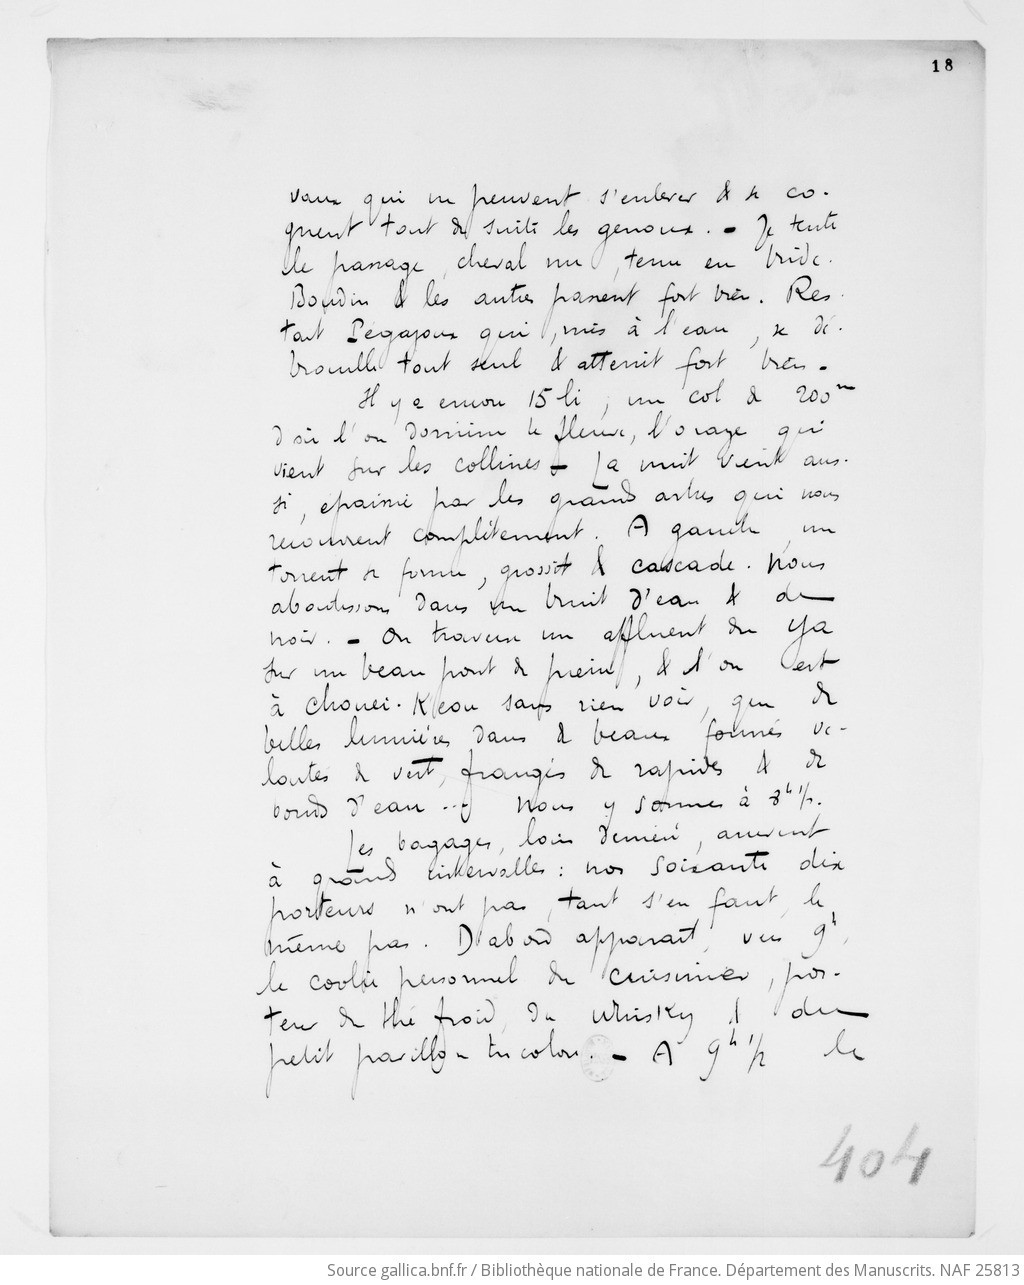 18
vaux qui ne peuvent s'enlever & se co-
gnent tout de suite les genoux. - Je tente
le passage, cheval nu, tenu en bride.
Boudin & les autres passent fort bien. Res-
tait Pégajoux qui, mis à l'eau, se dé-
brouille tout seul & atterrit fort bien.
Il y a encore 15 li, un col de 200m
d'où l'on domine le fleuve, l'orage qui
vient sur les collines - La nuit vient aus-
si, épaissie par les grands arbres qui nous
recouvrent complètement. A gauche, un
torrent se forme, grossit & cascade. Nous
aboutissons dans un bruit d'eau & du
noir. - On traverse un affluent du Ya
sur un beau pont de pierre, & l'on est
à Chouei-Keou sans rien voir, que de
belles lumières dans de beaux fonds ve-
loutés de vert, frangés de rapides & de
bonds d'eau ... Nous y sommes à 8h 1/2.
Les bagages, loin derrière, arrivent
à grands intervalles : nos soixante dix
porteurs n'ont pas, tant s'en faut, le
même pas. D'abord apparait, vers 9h,
le coolie personnel du cuisinier, por-
teur du thé froid, du whisky & du
petit pavillon tricolore. - A 9h 1/2 le
404
Source gallica.bnf.fr / Bibliothèque nationale de France. Département des Manuscrits. NAF 25813